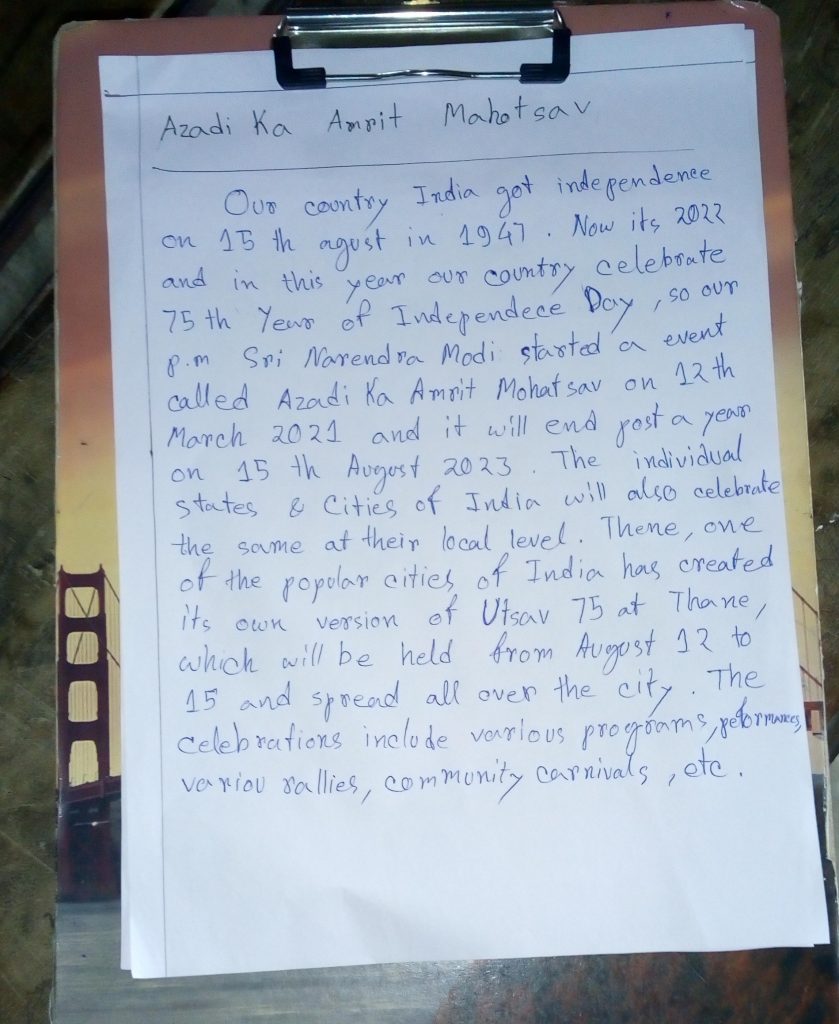 Azadi Ka Amrit Mahotsav
Our country India got independence
on 15 th agust in 1947. Now its 2022
and in this year our country celebrate
75 th Year of Independece Day, so our
p.m Sri Narendra Modi started a event
called Azadi Ka Amrit Mohatsav on 12 th
March 2021 and it will end post a year
on 15 th August 2023. The individual
states & Cities of India will also celebrate
the same at their local level. Thene, one
of the popular cities of India has created
its own version of Utsav 75 at Thane,
which will be held from August 12 to
15 and spread all over the city. The
celebrations include various programs, peformances,
variou rallies, community carnivals, etc.